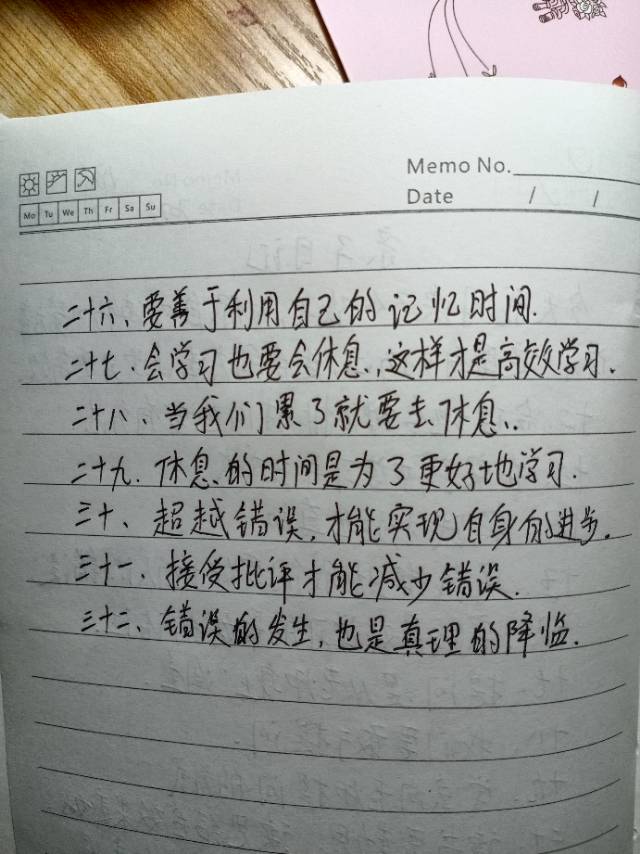 Memo No.
Date / /
Mo Tu We Th Fr Sa Su
二十六、要善于利用自己的记忆时间.
二十七.会学习也要会休息,这样才是高效学习.
二十八、当我们累了就要去休息.
二十九.休息的时间是为了更好地学习.
三十、超越错误,才能实现自身的进步。
三十一、接受批评才能减少错误.
三十二、错误的发生,也是真理的降临.